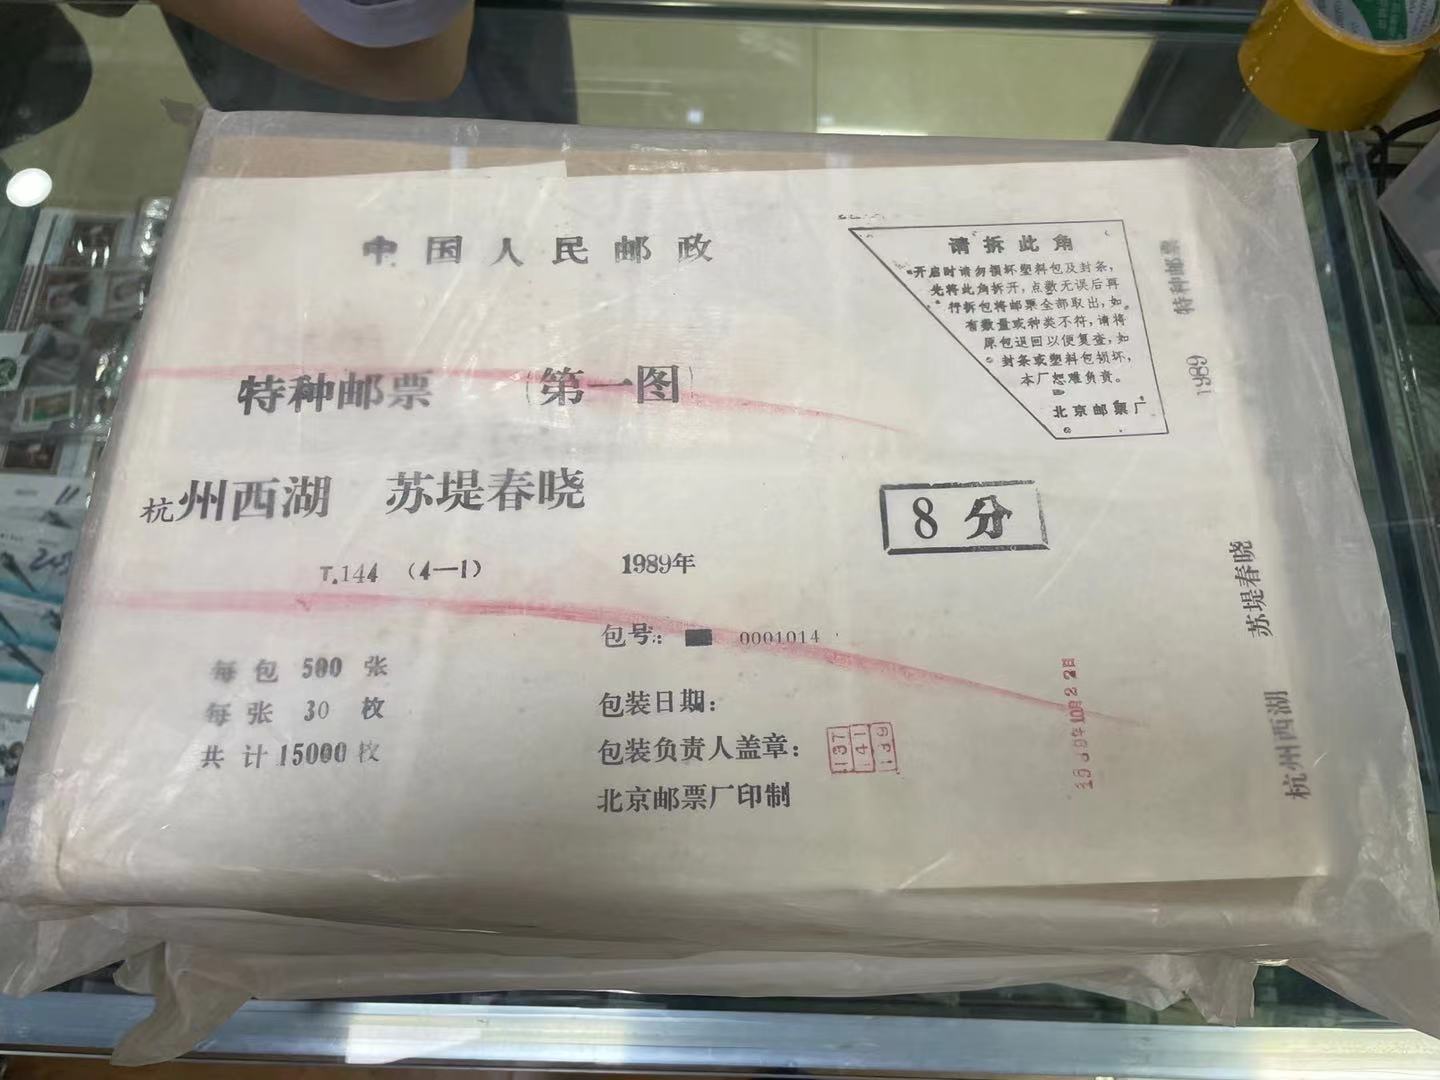 中国人民邮政
特种邮票 （第一图）
杭州西湖 苏堤春晓
T.144 （4—1） 1989年
8分
包号: 0001014
每包 500 张
每张 30 枚
共计 15000 枚
包装日期:
包装负责人盖章:
137
141
139
北京邮票厂印制
请拆此角
开启时请勿损坏塑料包及封条,
先将此角拆开,点数无误后再
行拆包将邮票全部取出,如
有数量或种类不符,请将
原包退回以便复查,如
封条或塑料包损坏,
本厂恕难负责。
北京邮票厂
1989 特种邮票
杭州西湖 苏堤春晓